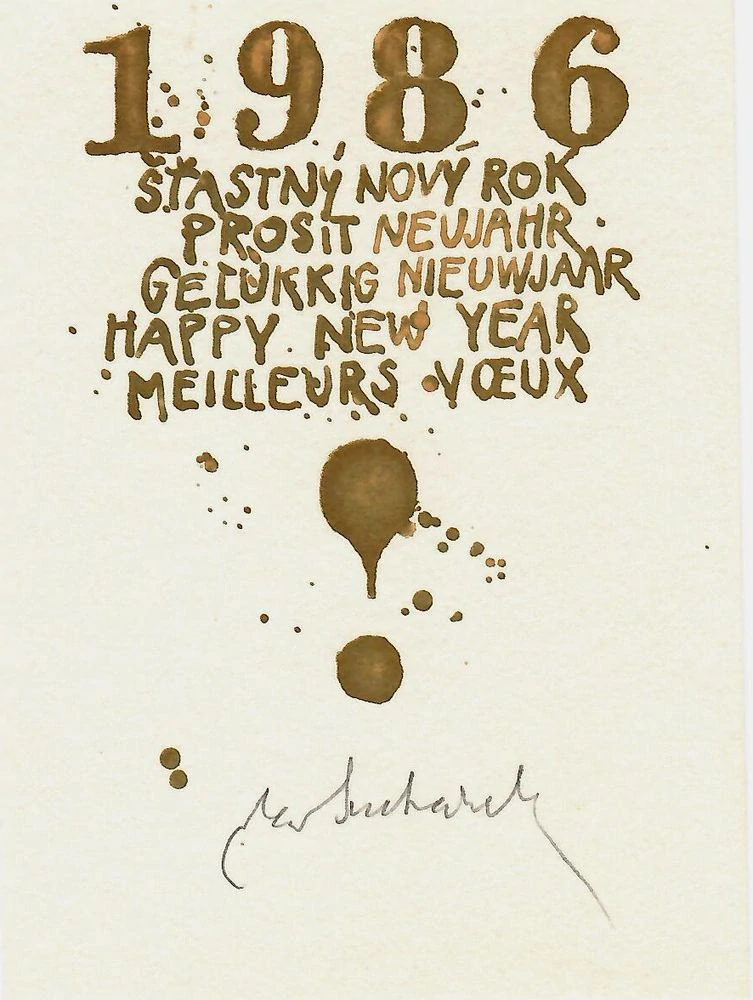 1986
ŠŤASTNÝ NOVÝ ROK
PROSIT NEUJAHR
GELUKKIG NIEUWJAAR
HAPPY NEW YEAR
MEILLEURS VŒUX